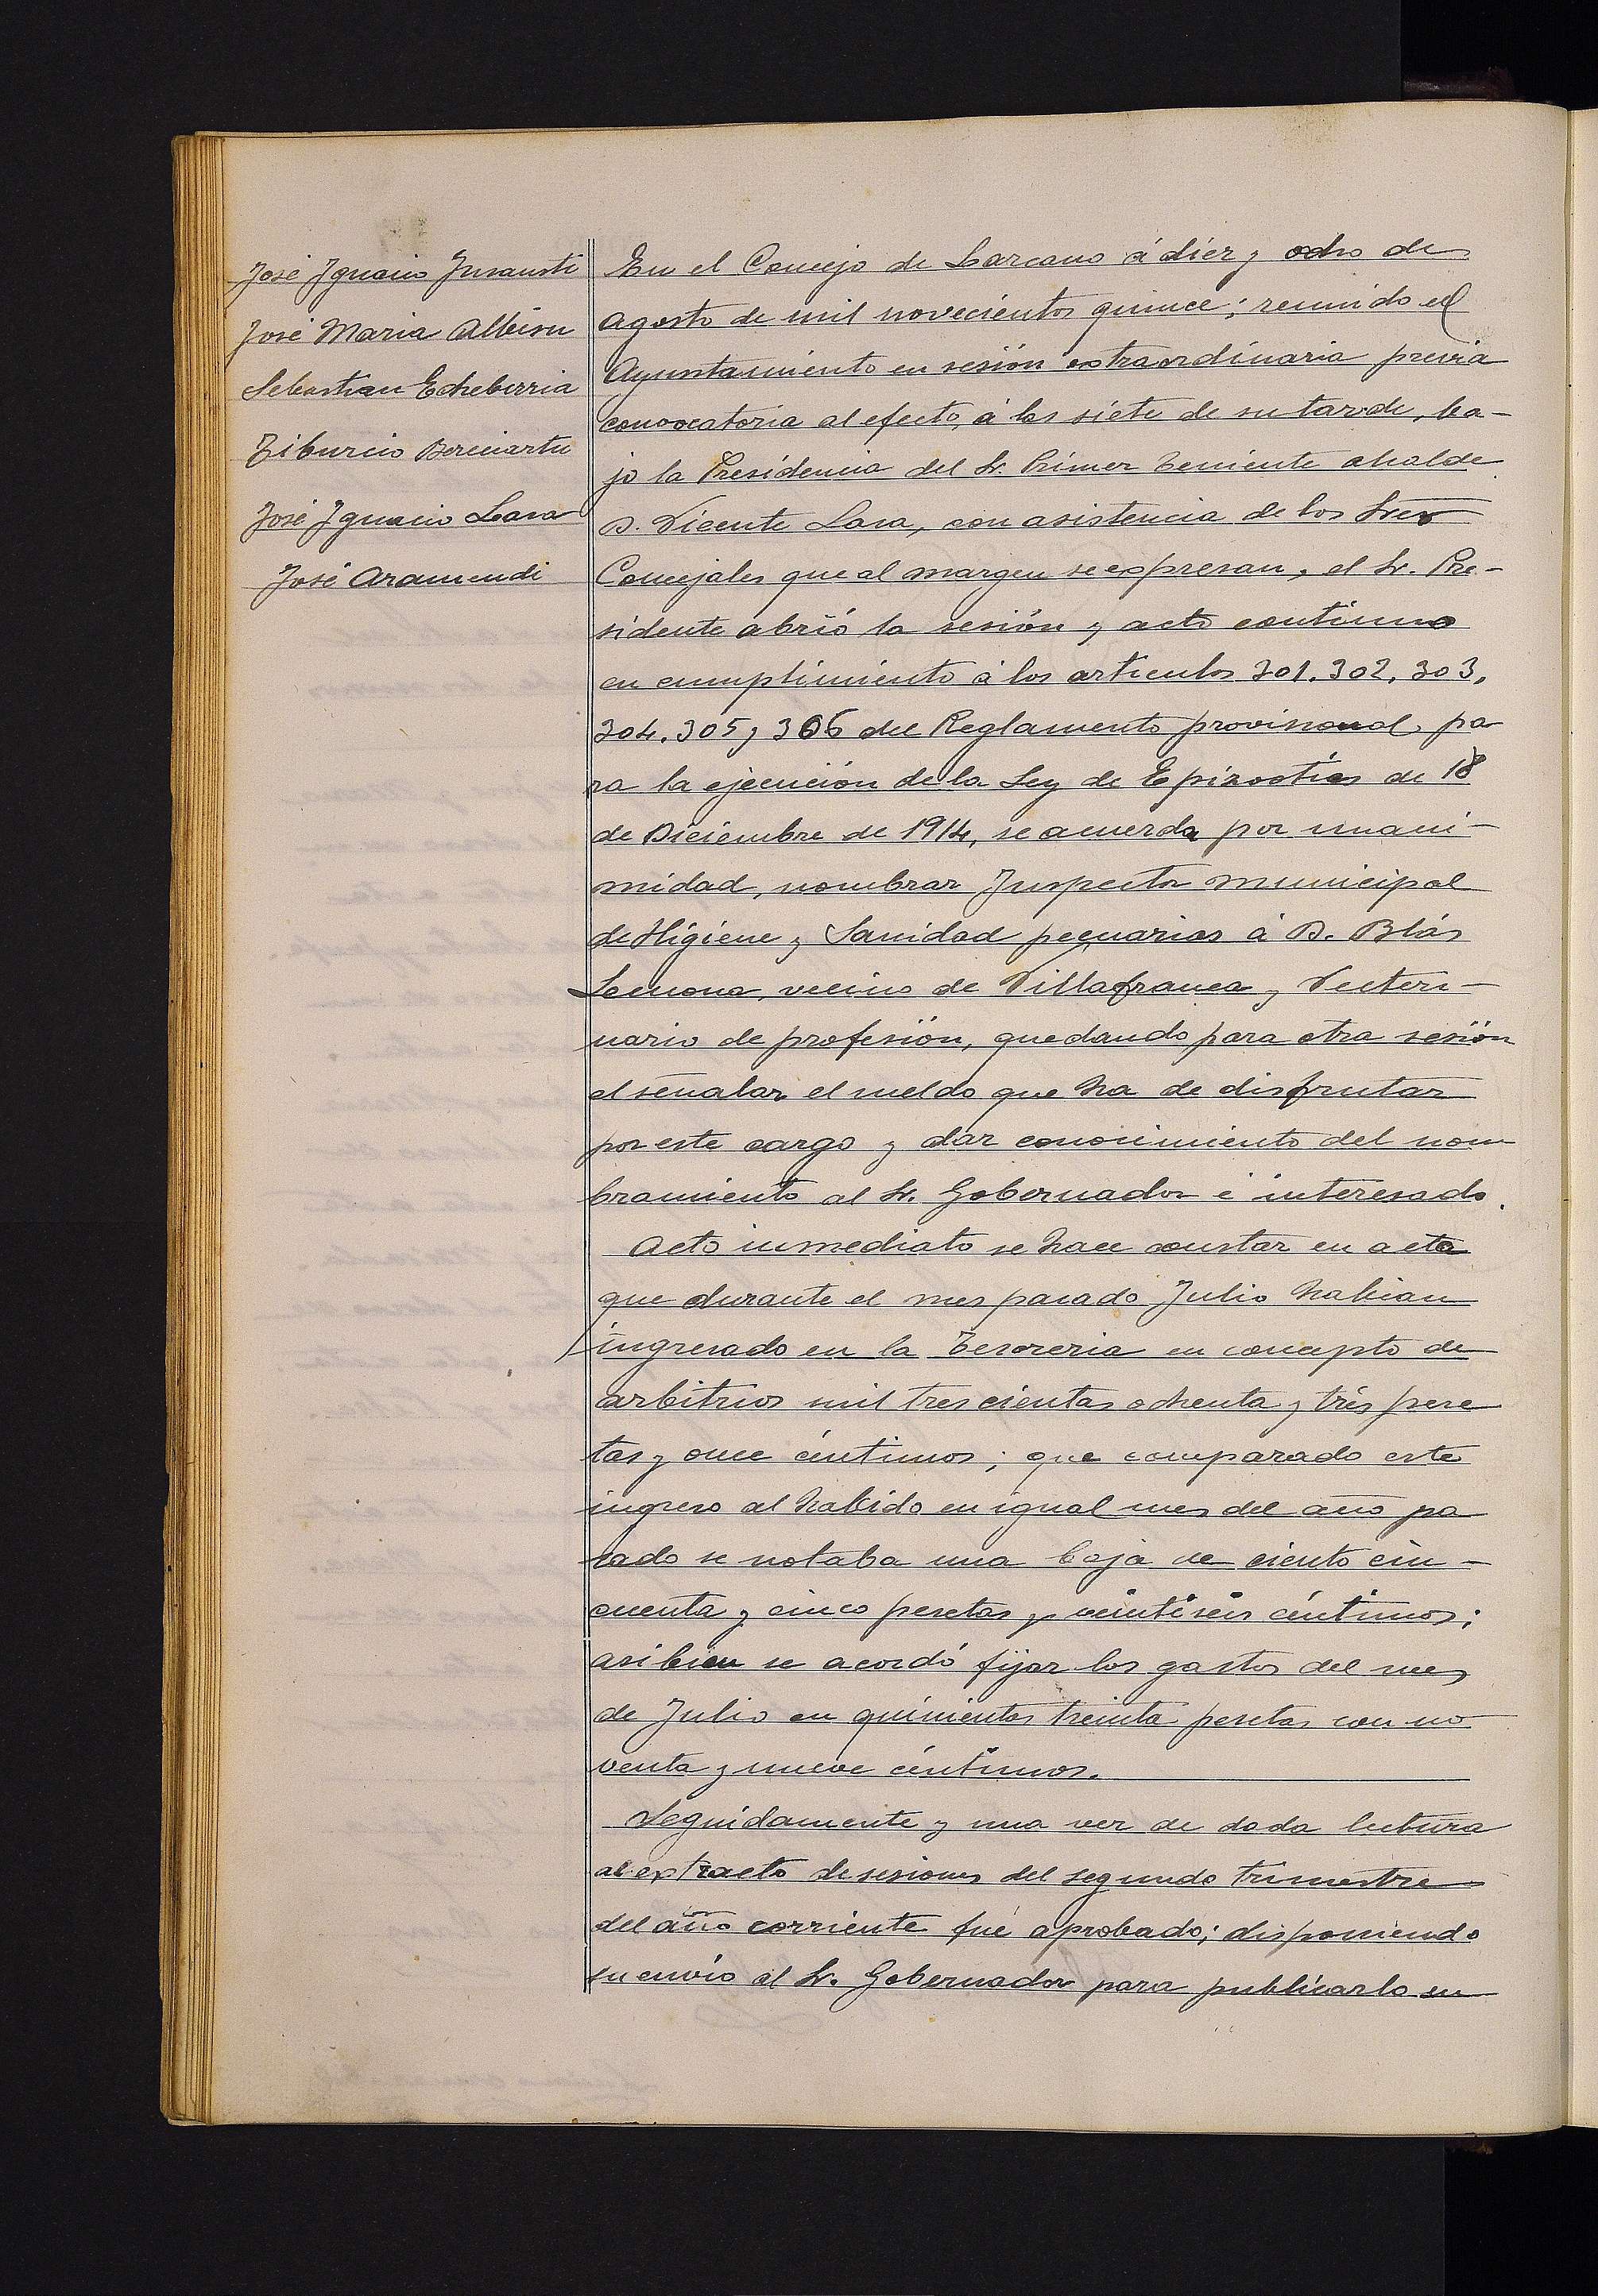 José Ygnacio Insausti
José Maria Albisu
Sebastian Echeberria
Tiburcio Berciartu
José Ygnacio Lasa
José Aramendi
En el Concejo de Lazcano á diez y ocho de
Agosto de mil novecientos quince; reunido el
Ayuntamiento en sesión extraordinaria previa
convocatoria al efecto, á las siete de su tarde, ba-
jo la Presidencia del Sr. Primer teniente alcalde
D. Vicente Lasa, con asistencia de los Sres
Concejales que al margen se expresan, el Sr. Pre-
sidente abrió la sesión y acto continuo
en cumplimiento á los articulos 301. 302. 303.
304. 305 y 306 del Reglamento provisional pa
ra la ejecución de la Ley de Epizootias de 18
de Diciembre de 1914, se acuerda por unani-
midad, nombrar Inspector municipal
de Higiene y Sanidad pecuarias á D. Blás
Lemona, vecino de Villafranca y Vecteri-
nario de profesión, quedando para otra sesión
el señalar el sueldo que ha de disfrutar
por este cargo y dar conocimiento del nom
bramiento al Sr. Gobernador é interesado.
Acto inmediato se hace constar en acta
que durante el mes pasado Julio habian
ingresado en la Tesoreria en concepto de
arbitrios mil trescientas ochenta y trés pese
tas y once céntimos; que comparado este
ingreso al habido en igual mes del año pa
sado se notaba una baja de ciento cin-
cuenta y cinco pesetas y veintiseis céntimos;
asibien se acordó fijar los gastos del mes
de Julio en quinientas treinta pesetas con no
venta y nueve céntimos.
Seguidamente y una vez de dada lectura
al extracto de sesiones del segundo trimestre
del año corriente fué aprobado; disponiendo
su envio al Sr. Gobernador para publicarlo en